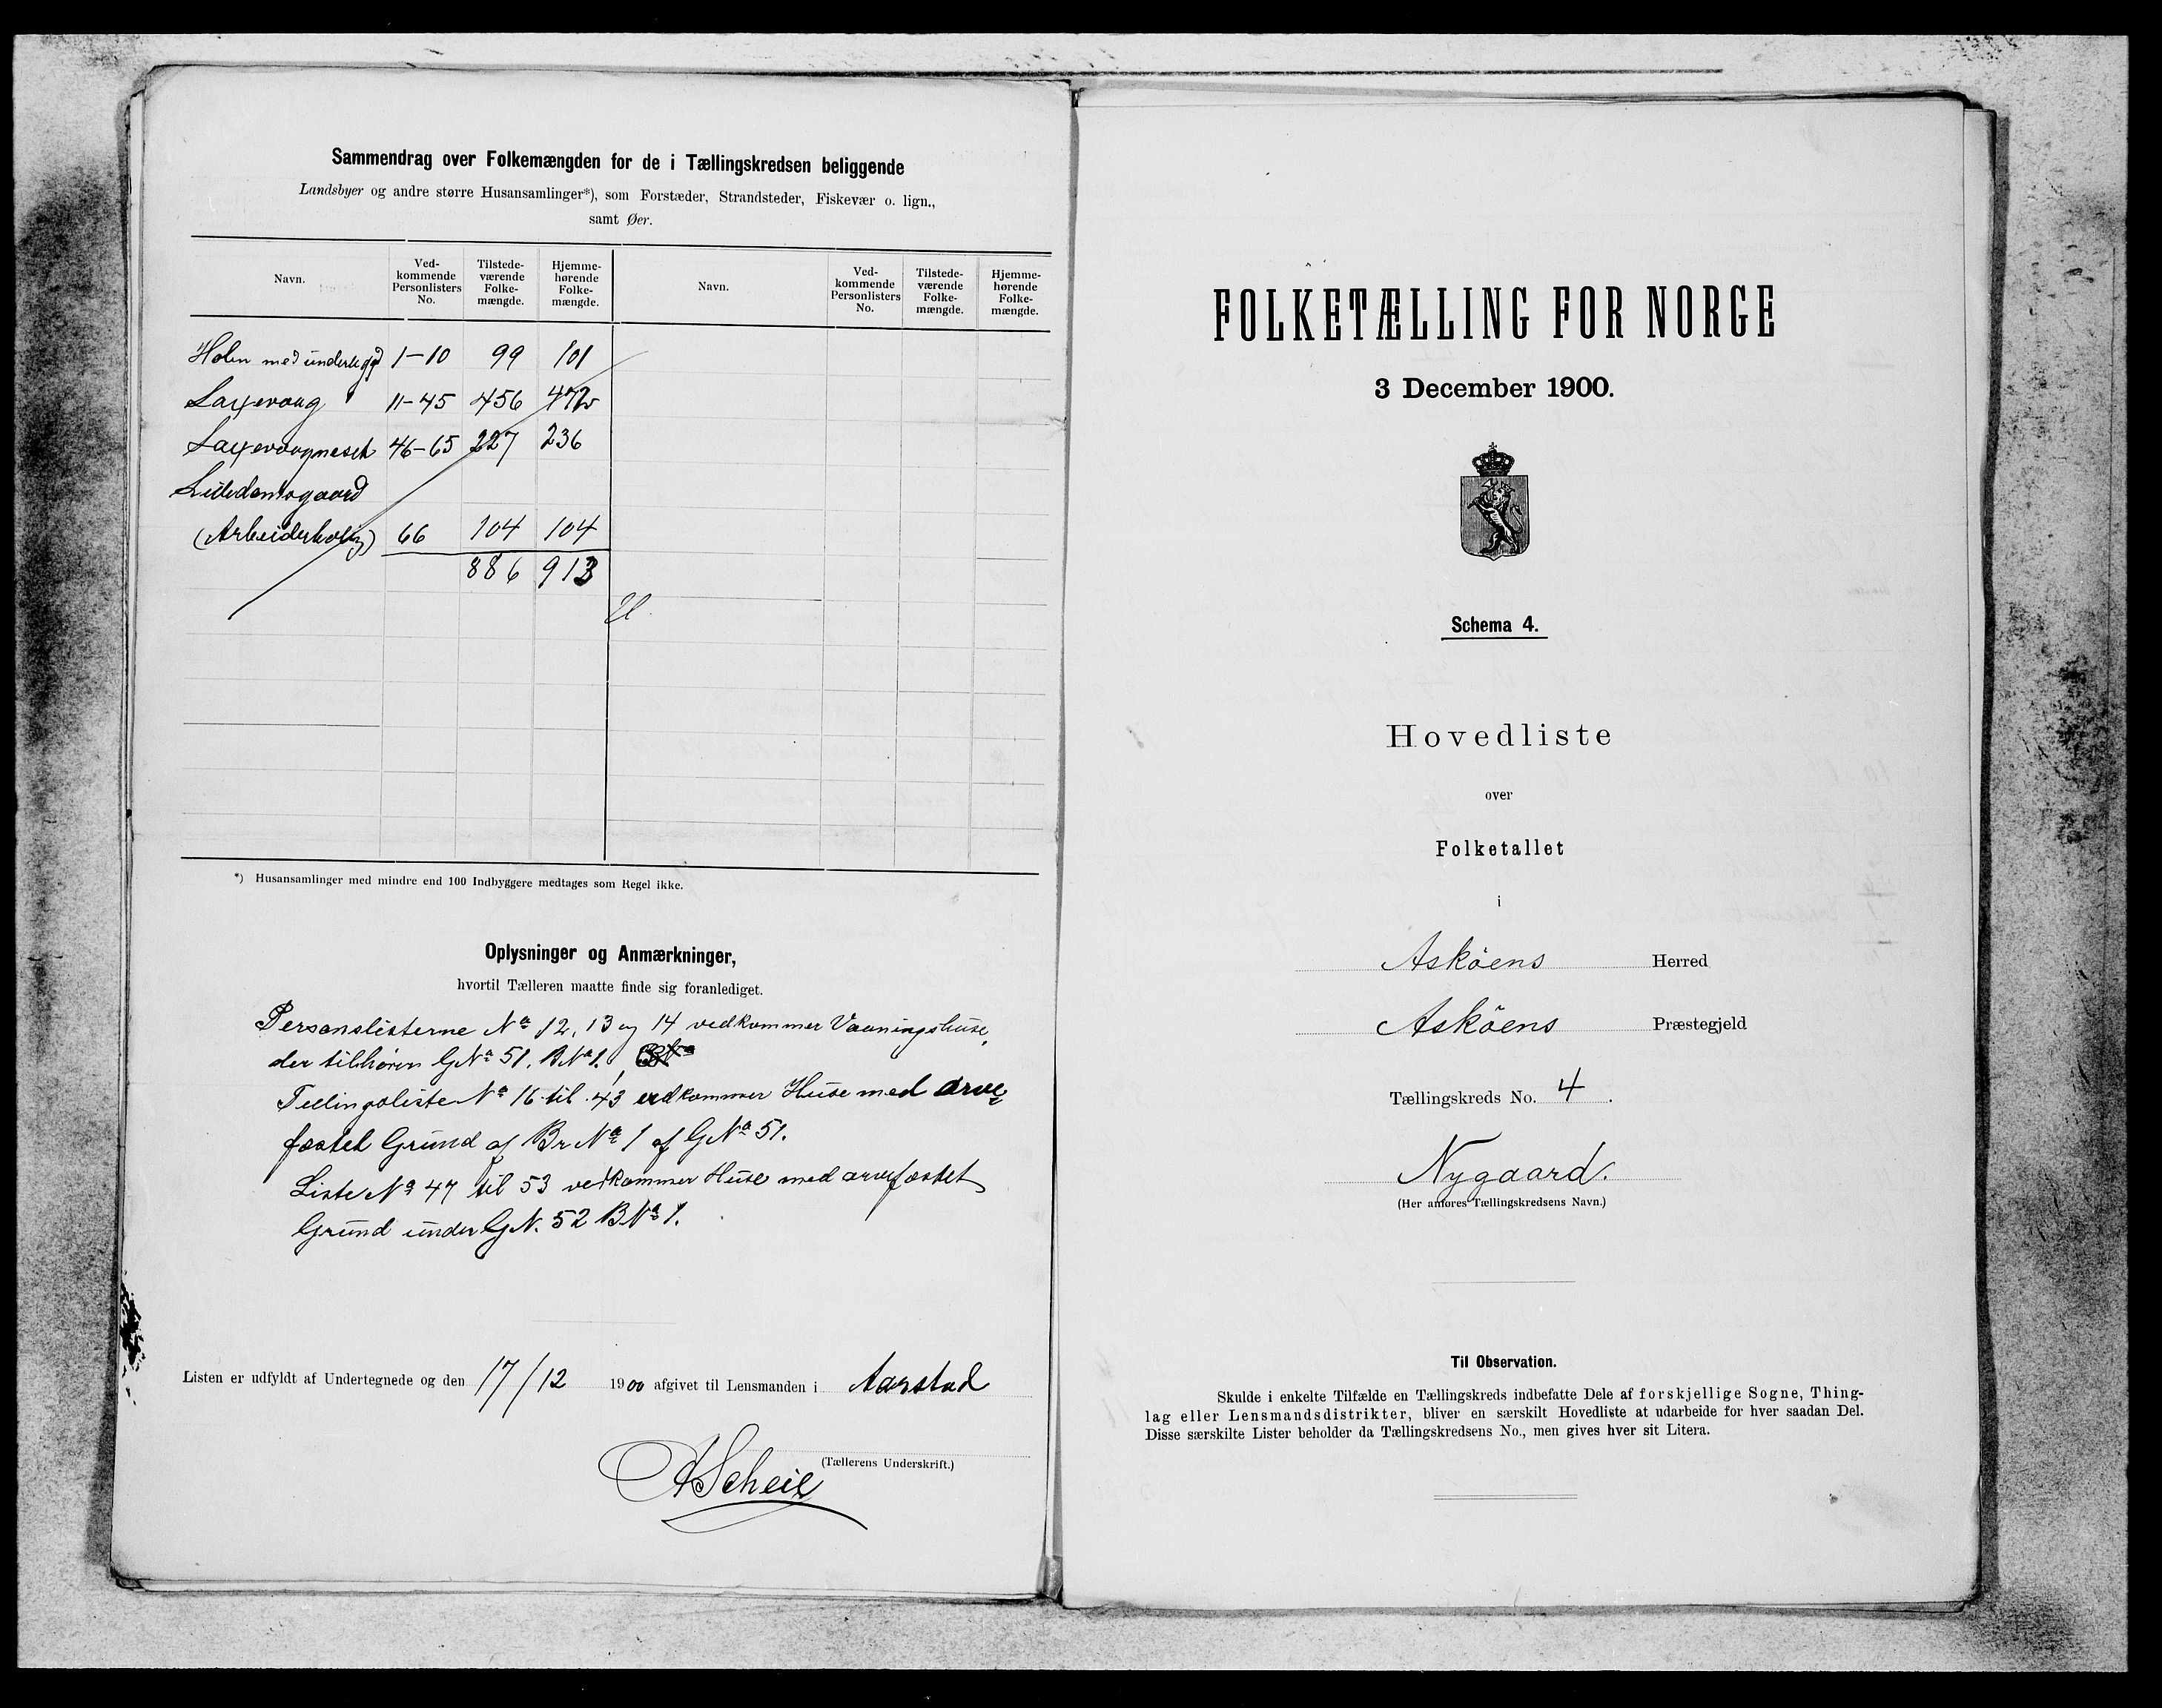 Sammendrag over Folkemængden for de i Tællingskredsen beliggende
Landsbyer og andre større Husansamlinger*), som Forstæder, Strandsteder, Fiskevær o. lign.,
samt Øer.
Navn. Ved-kommende Personlisters No. Tilstede-værende Folke-mængde. Hjemme-hørende Folke-mængde. Navn. Ved-kommende Personlisters No. Tilstede-værende Folke-mængde. Hjemme-hørende Folke-mængde.
Holen med 1-10 99 101
Laxevaag 11-45 456 472
Laxevaagneset 46-65 227 236
(Arbeiderbolig) 66 104 104
886 913
*) Husansamlinger med mindre end 100 Indbyggere medtages som Regel ikke.
Oplysninger og Anmærkninger,
hvortil Tælleren maatte finde sig foranlediget.
Personslisterne Na 12, 13 og 14 vedkommer Vaaningshuse,
der tilhører GNa 51. BNa 1.
Tellingsliste Na 16 til 43 vedkommer Huse med arve
fæstet Grund af BrNa 1 af GNa 51.
Liste Na 47 til 53 vedkommer Huse med arvefæstet
Grund under GN. 52 BNa 1.
Listen er udfyldt af Undertegnede og den 17/12 1900 afgivet til Lensmanden i Aarstad
(Tællerens Underskrift.)
AScheie
FOLKETÆLLING FOR NORGE
3 December 1900.
Schema 4.
Hovedliste
over
Folketallet
i
Askøens Herred
Askøens Præstegjeld
Tællingskreds No. 4.
Nygaard.
(Her anføres Tællingskredsens Navn.)
Til Observation.
Skulde i enkelte Tilfælde en Tællingskreds indbefatte Dele af forskjellige Sogne, Thing-
lag eller Lensmandsdistrikter, bliver en særskilt Hovedliste at udarbeide for hver saadan Del.
Disse særskilte Lister beholder da Tællingskredsens No., men gives hver sit Litera.